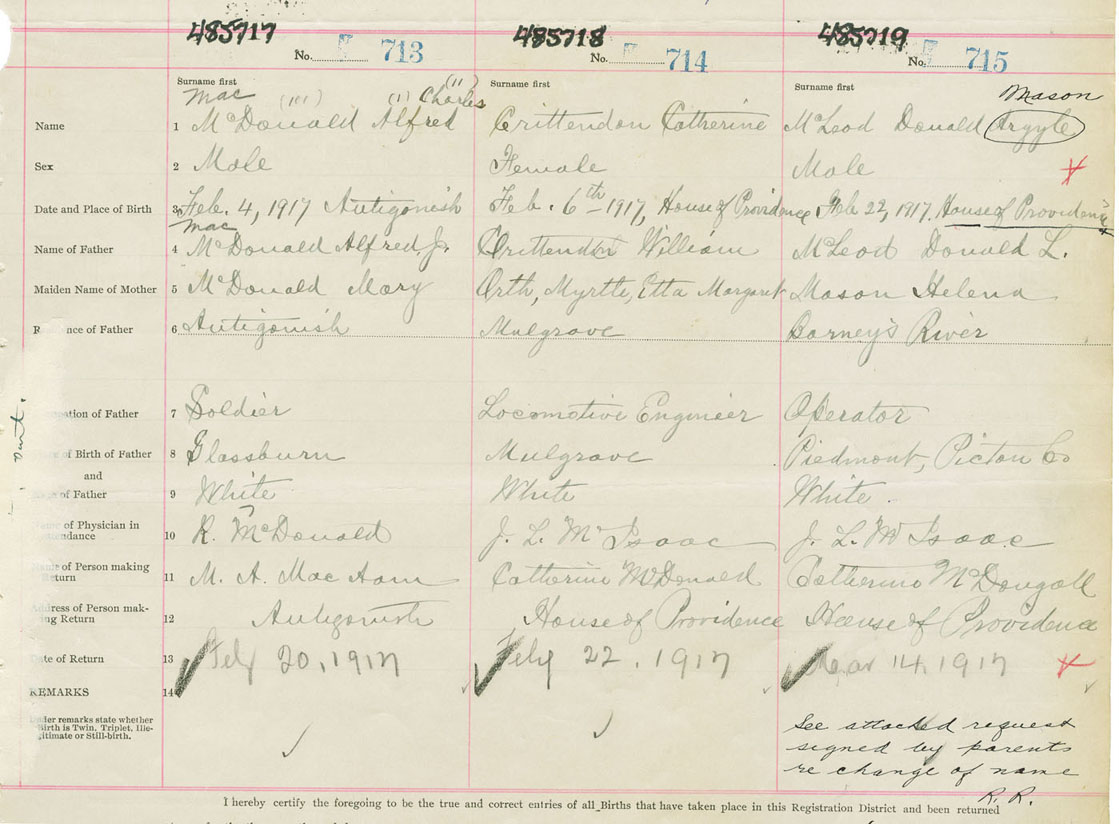 485717 485718 485719
No. 713 No. 714 No. 715
Surname first Surname first Surname first
Mac (101) (1) (11) Charles Mason
Name 1 McDonald Alfred Crittendon Catherine McLeod Donald Argyle
Sex 2 Male Female Male
Date and Place of Birth 3 Feb. 4, 1917 Antigonish Feb. 6th 1917, House of Providence Feb 22, 1917. House of Providence
Mac
Name of Father 4 McDonald Alfred J. Crittendon William McLeod Donald L.
Maiden Name of Mother 5 McDonald Mary Orth, Myrtle, Etta Margaret Mason Helena
R nce of Father 6 Antigonish Mulgrave Barney's River
ation of Father 7 Soldier Locomotive Engineer Operator
of Birth of Father 8 Glassburn Mulgrave Piedmont, Pictou Co
and
of Father 9 White White White
of Physician in
endance 10 R. McDonald J. L. McIsaac J. L. McIsaac
of Person making
Return 11 M. A. MacAdam Catherine McDonald Catherine McDougall
Address of Person mak-
ing Return 12 Antigonish House of Providence House of Providence
Date of Return 13 Feby 20, 1917 Feby 22, 1917 Mar 14, 1917
REMARKS 14
Under remarks state whether
Birth is Twin, Triplet, Ille-
gitimate or Still-birth.
See attached request
signed by parents
re change of name
R. R.
I hereby certify the foregoing to be the true and correct entries of all Births that have taken place in this Registration District and been returned